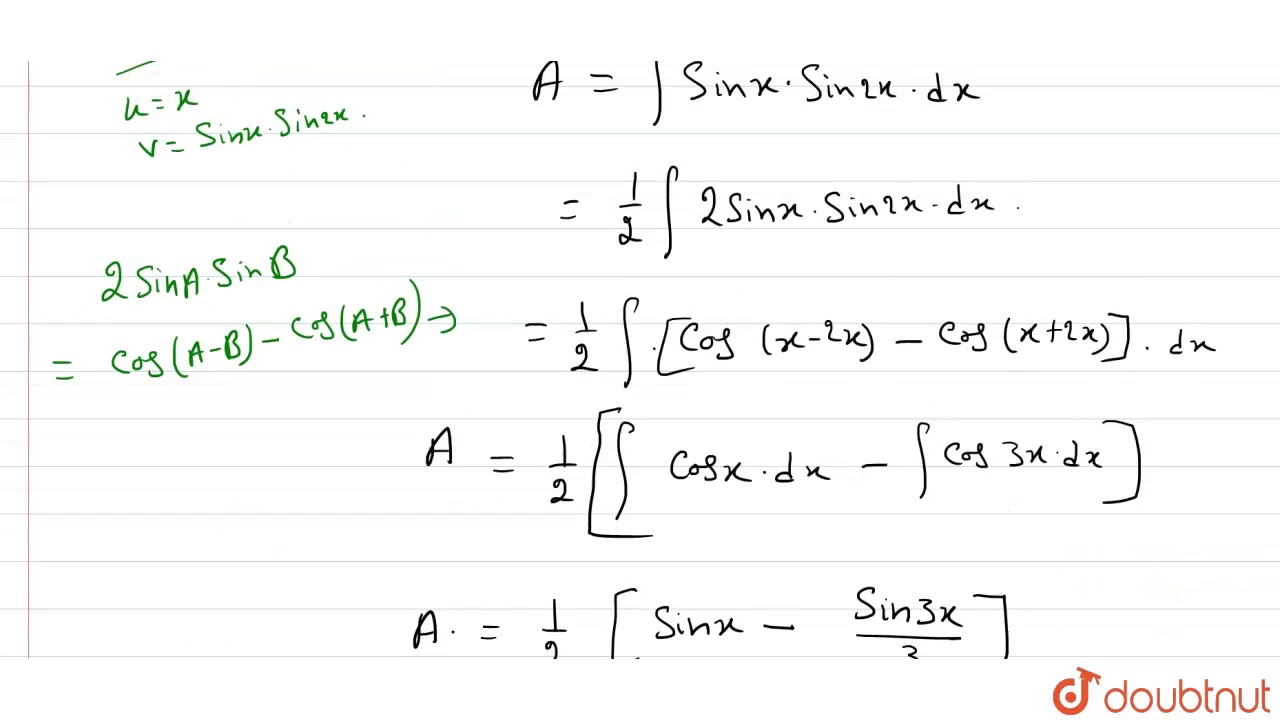 u = x
v = Sinx · Sin2x .
A = ∫ Sinx · Sin2x · dx
= 1/2 ∫ 2Sinx · Sin2x · dx .
2 SinA · Sin B
= Cos(A-B) - Cos(A+B) →
= 1/2 ∫ · [Cos (x-2x) - Cos (x+2x)] . dx
A = 1/2 [∫ Cosx · dx - ∫ Cos 3x · dx]
A · = 1/2 [Sinx - Sin3x/3]
doubtnut